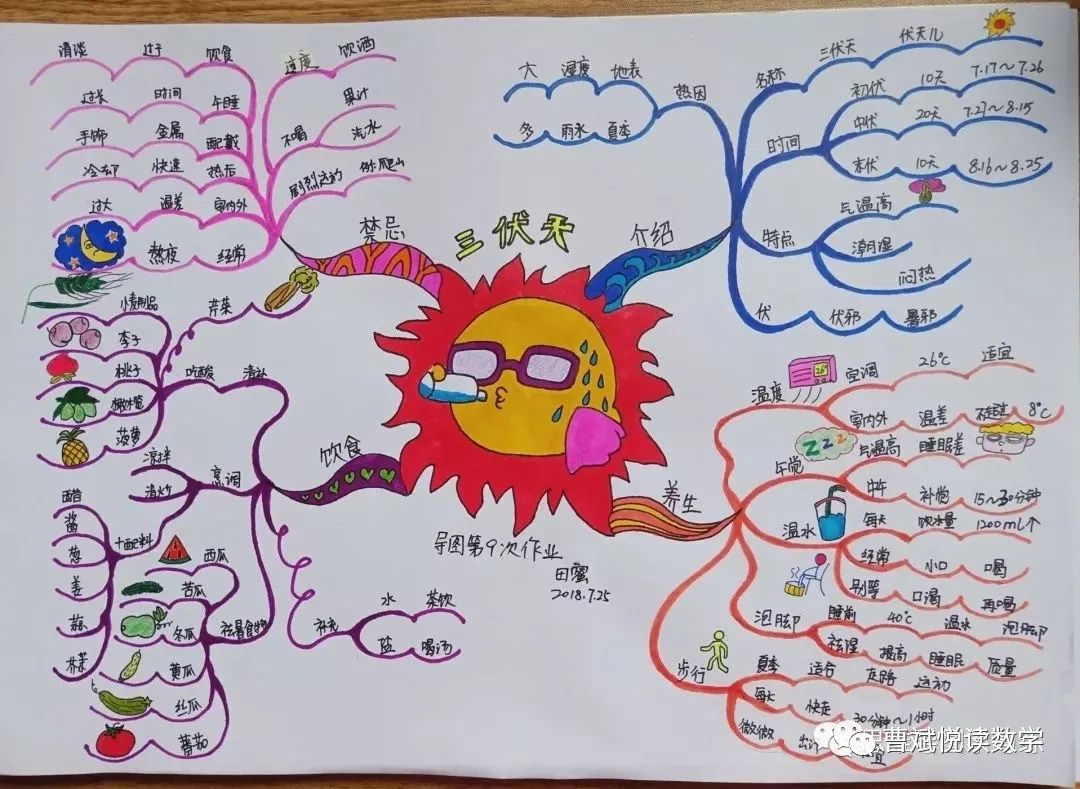 三伏天
导图第9次作业
田蜜
2018.7.25
介绍
热因
地表 湿度 大
夏季 雨水 多
名称
三伏天 伏天儿
时间
初伏 10天 7.17～7.26
中伏 20天 7.27～8.15
末伏 10天 8.16～8.25
特点
气温高
潮湿
闷热
伏 伏邪 暑邪
养生
温度
空调 26℃ 适宜
26°
室内外 温差 不超过 8℃
午觉
zzz
气温高 睡眠差
中午 补觉 15～30分钟
温水
每天 饮水量 1200ml个
经常 小口 喝
别等 口渴 再喝
泡脚
睡前 40℃ 温水 泡脚
祛湿 提高 睡眠 质量
步行
夏季 适合 走路 运动
每天 快走 30分钟～1小时
微微 出汗
饮食
清补
吃酸
芹菜
小麦制品
李子
桃子
橄榄
菠萝
烹调
凉拌
清炒
+配料
醋
酱
葱
姜
蒜
芥菜
祛暑食物
西瓜
苦瓜
冬瓜
黄瓜
丝瓜
蕃茄
补充
水 茶饮
盐 喝汤
禁忌
过度 饮酒
不喝
果汁
汽水
剧烈运动 你爬山
饮食 过于 清淡
午睡 时间 过长
配戴 金属 手饰
热后 快速 冷却
室内外 温差 过大
经常 熬夜
曹斌悦读数学